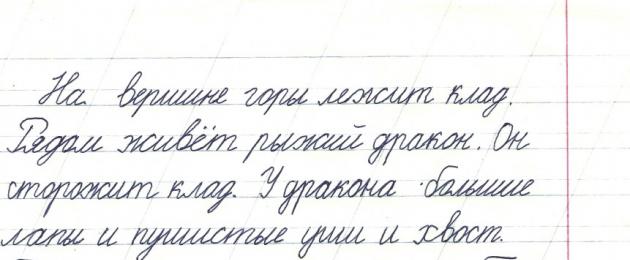 На вершине горы лежит клад.
Рядом живёт рыжий дракон. Он
сторожит клад. У дракона большие
лапы и пушистые уши и хвост.